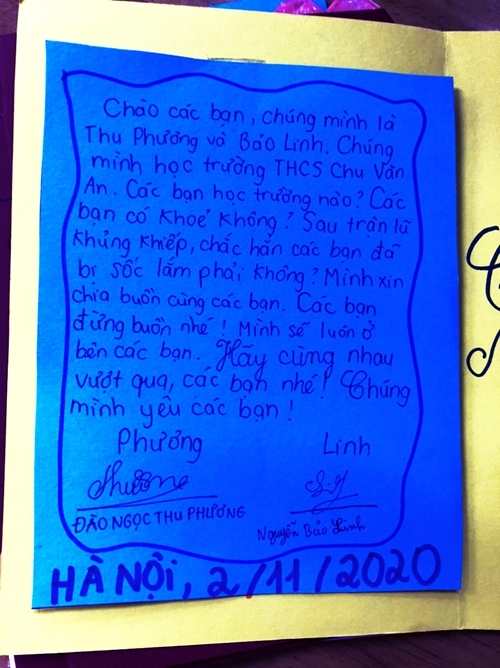 Chào các bạn, chúng mình là
Thu Phương và Bảo Linh. Chúng
mình học trường THCS Chu Văn
An. Các bạn học trường nào? Các
bạn có khoẻ không? Sau trận lũ
khủng khiếp, chắc hẳn các bạn đã
bị sốc lắm phải không? Mình xin
chia buồn cùng các bạn. Các bạn
đừng buồn nhé! Mình sẽ luôn ở
bên các bạn. Hãy cùng nhau
vượt qua, các bạn nhé! Chúng
mình yêu các bạn!
Phương Linh
Phương
ĐÀO NGỌC THU PHƯƠNG Nguyễn Bảo Linh
HÀ NỘI, 2/11/2020